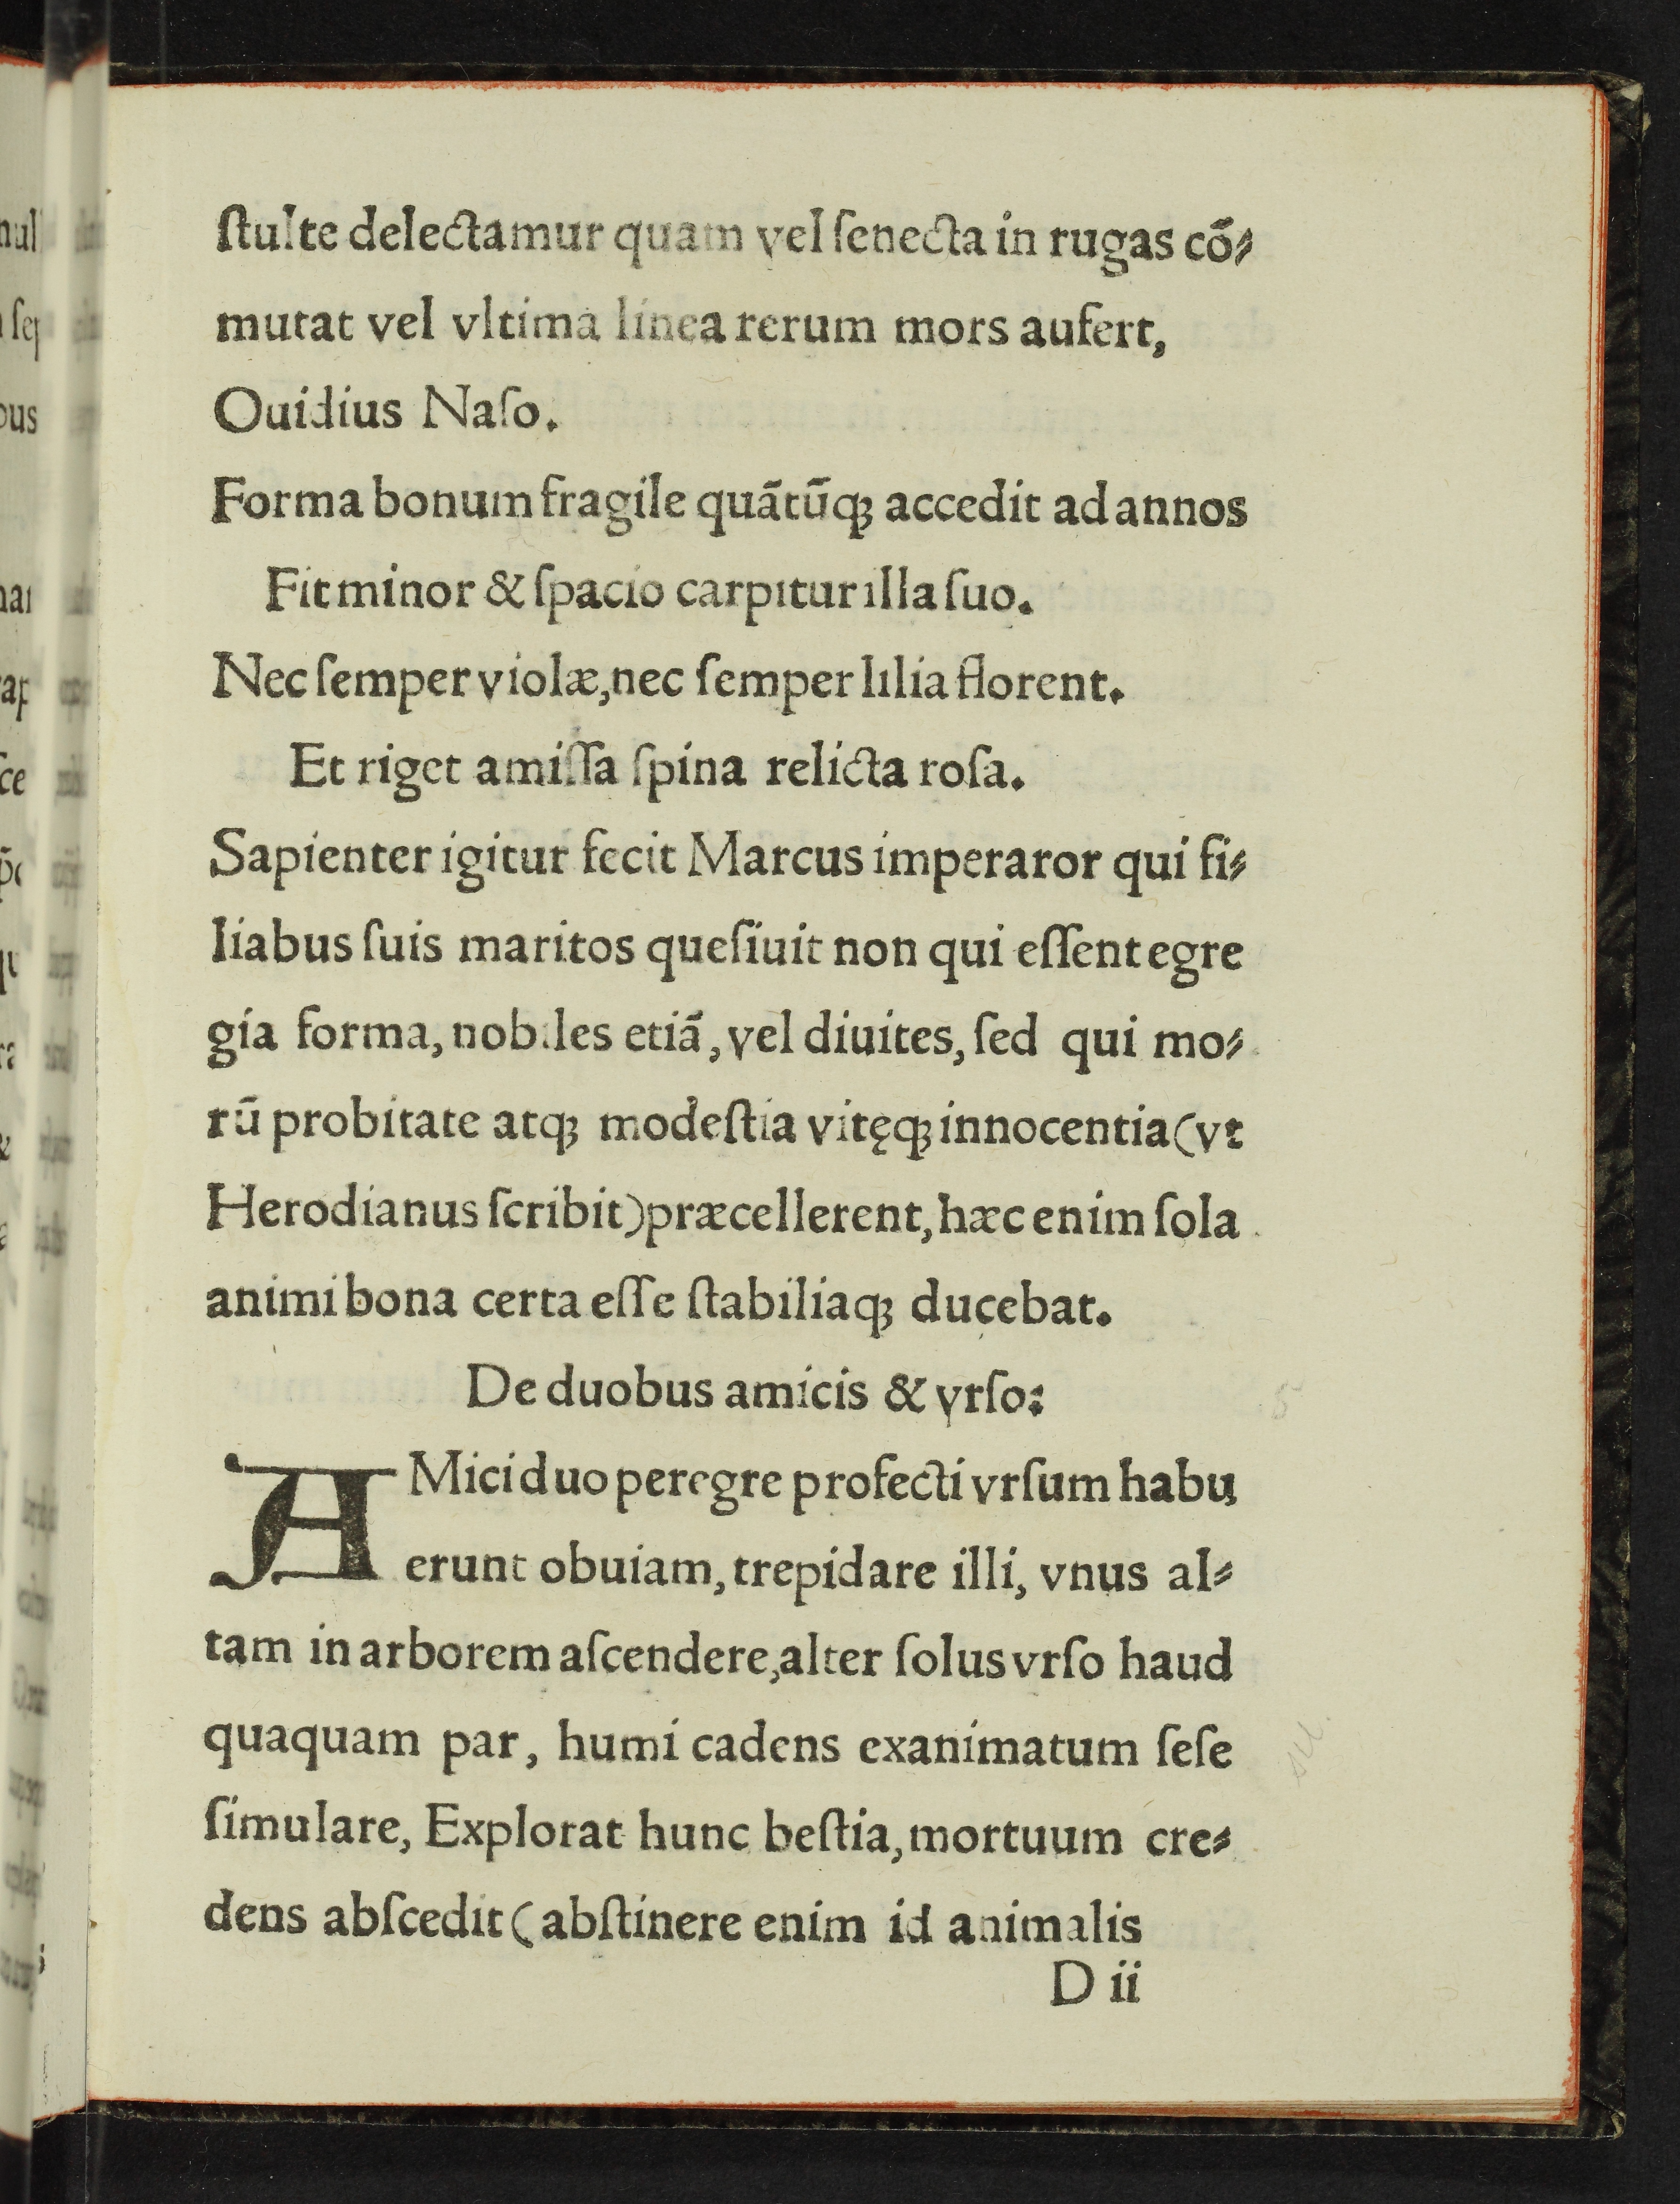 ſtulte delectamur quam vel ſenecta in rugas cō⸗
mutat vel vltima linea rerum mors aufert,
Ouidius Naſo.
Forma bonum fragile quātūqꝫ accedit ad annos
Fit minor & ſpacio carpitur illa ſuo.
Nec ſemper violæ, nec ſemper lilia florent.
Et riget amiſſa ſpina relicta roſa.
Sapienter igitur fecit Marcus imperaror qui fi⸗
liabus ſuis maritos queſiuit non qui eſſent egre
gia forma, nobiles etiā, vel diuites, ſed qui mo⸗
rū probitate atqꝫ modeſtia vitęqꝫ innocentia (vt
Herodianus ſcribit) præcellerent, hæc enim ſola
animi bona certa eſſe ſtabiliaqꝫ ducebat.
De duobus amicis & vrſo:
AMici duo peregre profecti vrſum habu
erunt obuiam, trepidare illi, vnus al⸗
tam in arborem aſcendere, alter ſolus vrſo haud
quaquam par, humi cadens exanimatum ſeſe
ſimulare, Explorat hunc beſtia, mortuum cre⸗
dens abſcedit (abſtinere enim id animalis
D ii